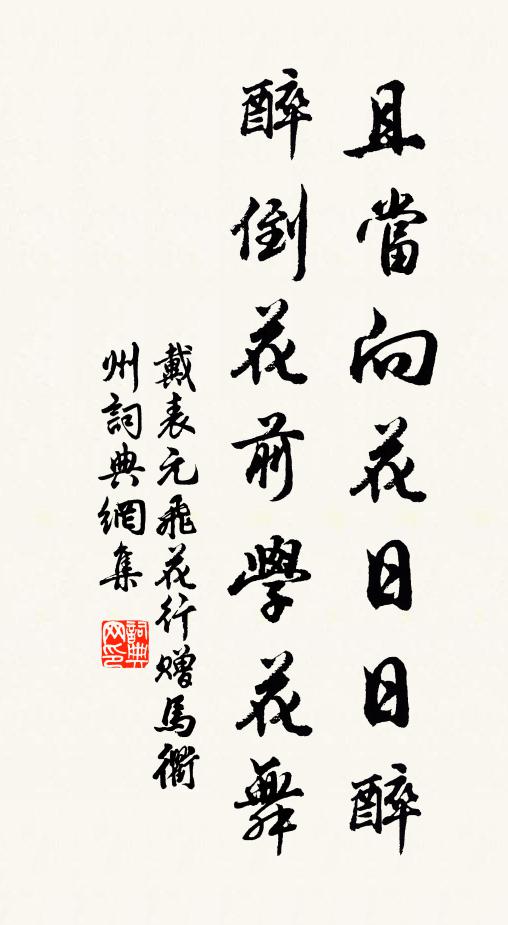 且當向花日日醉
醉倒花前學花舞
戴表元飛花行贈馬衢
州詞典網集
詞典網印